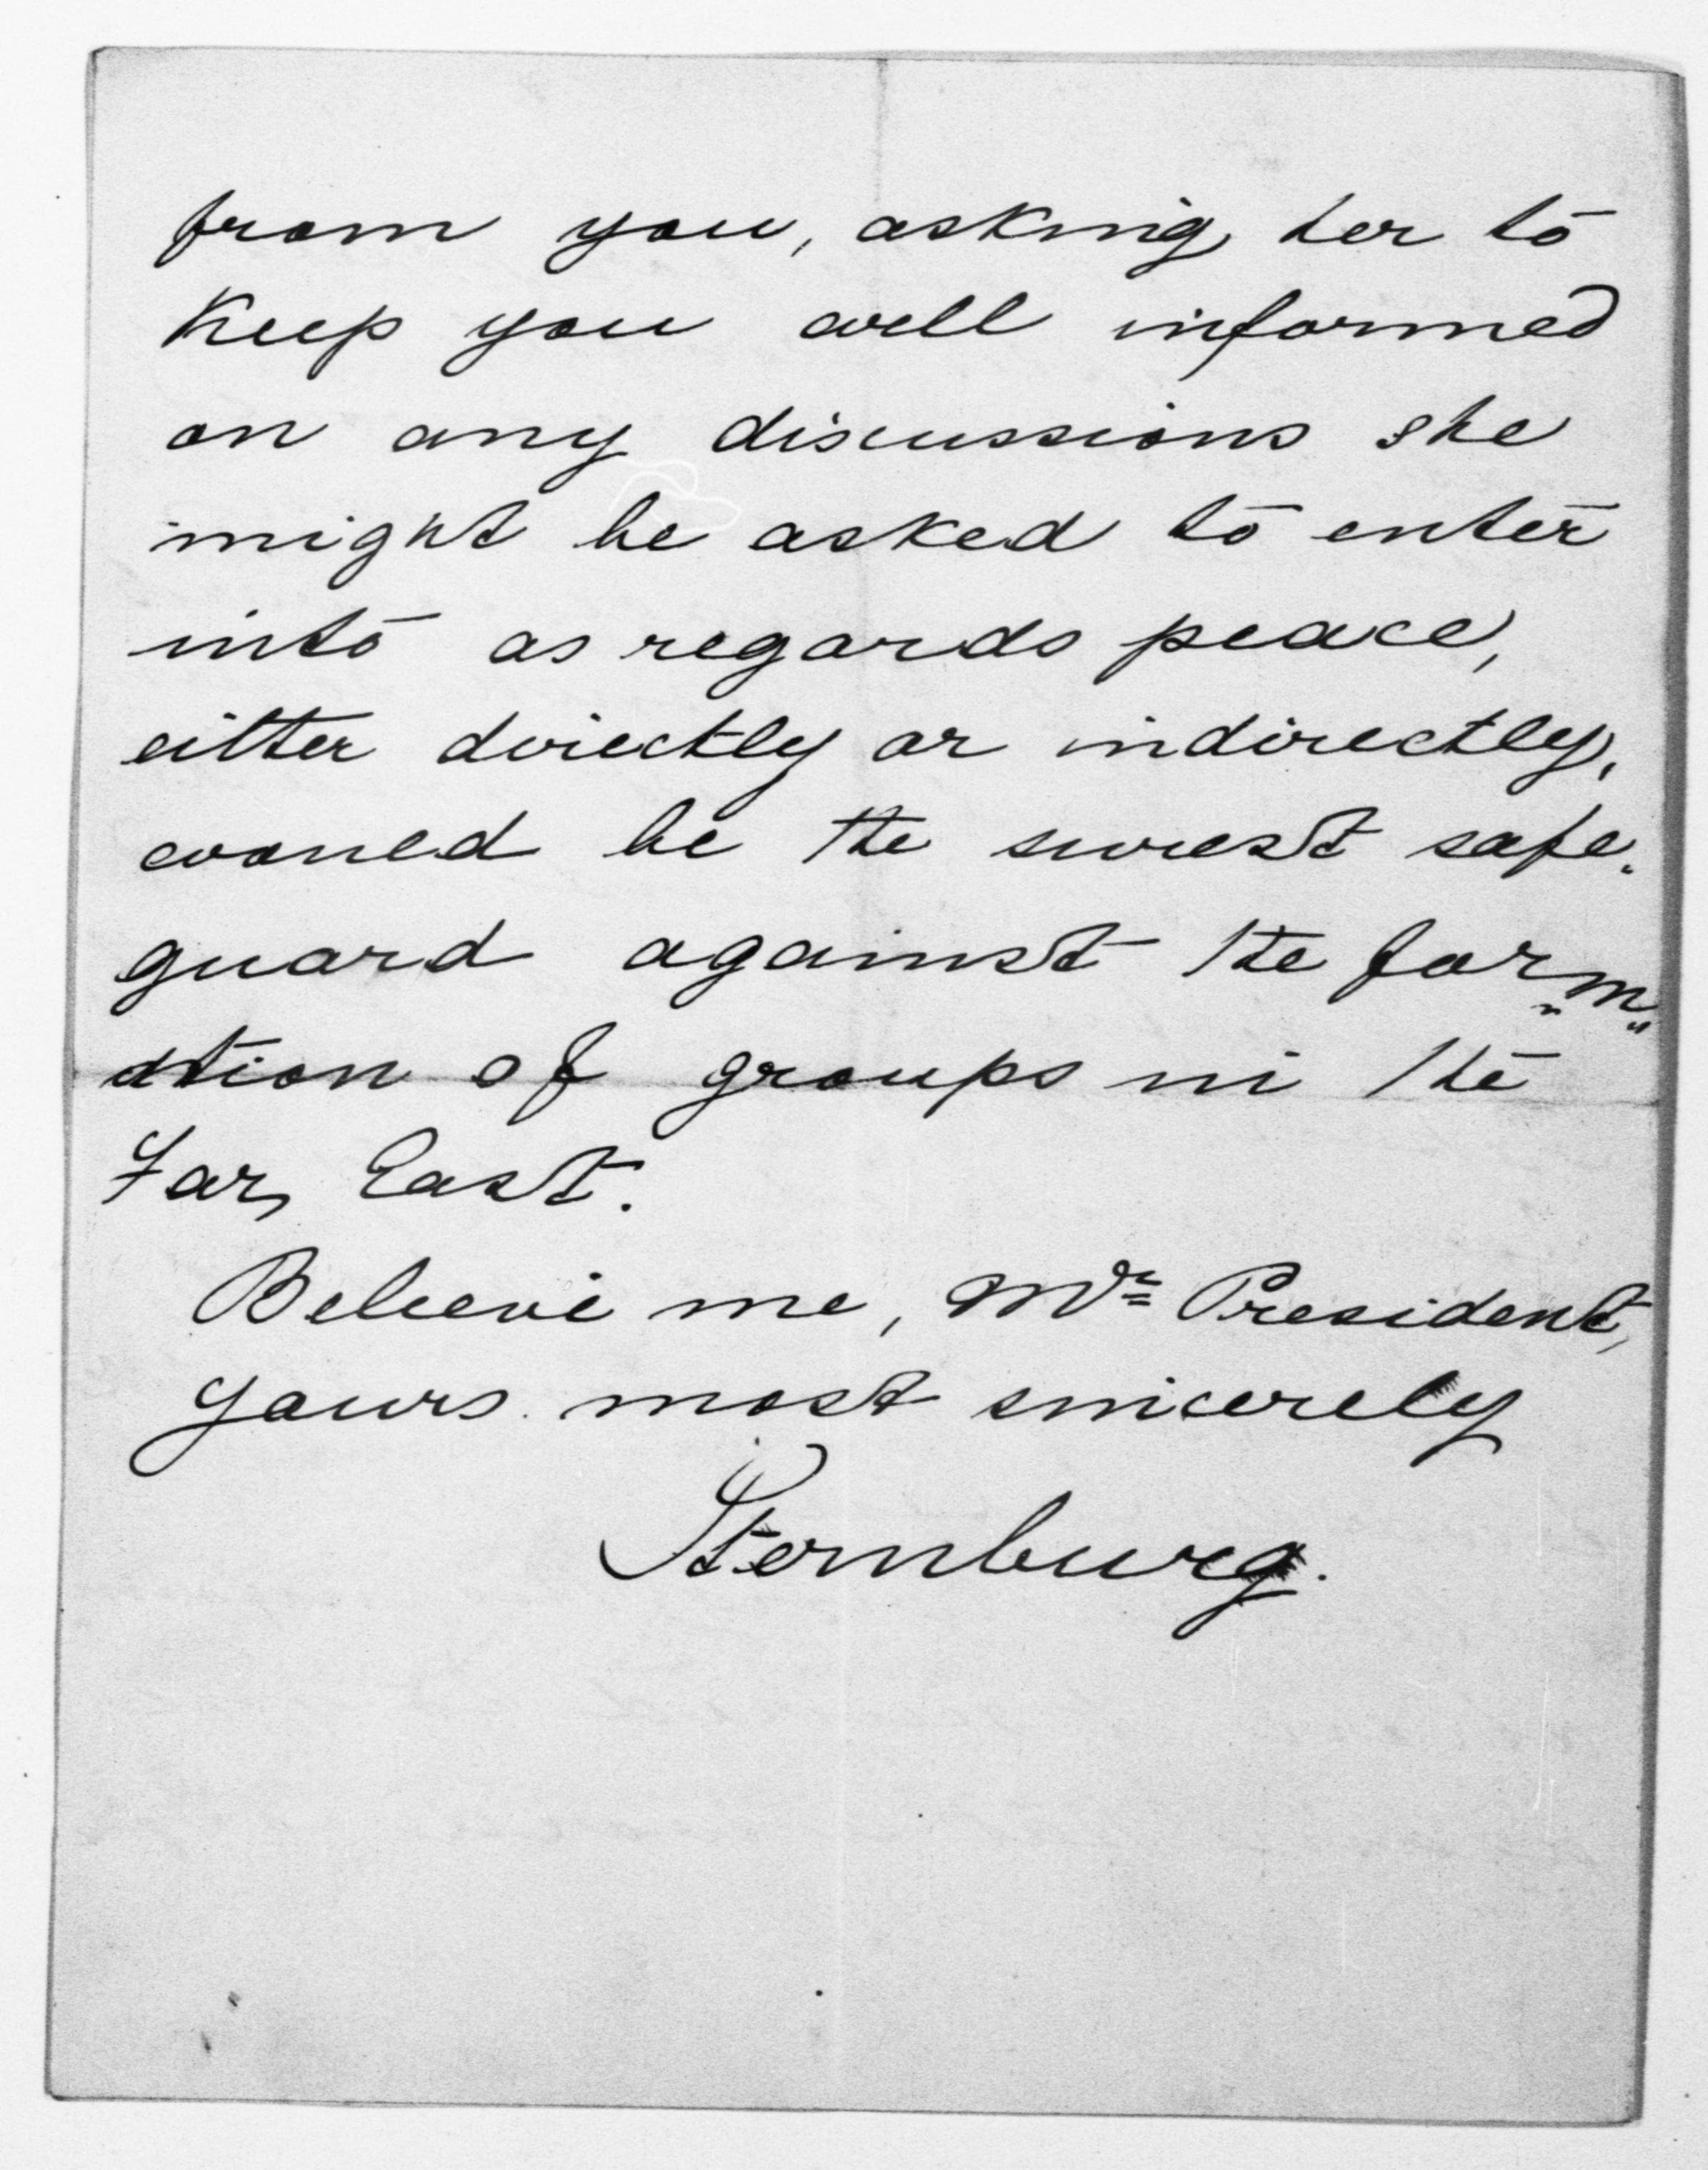 from you, asking her to
Keep you well informed
on any discussions she
might be asked to enter
into as regards peace,
either directly or indirectly,
would be the surest safe-
guard against the form-
ation of groups in the
Far East.
Believe me, Mr President,
yours most sincerely
Sternburg.